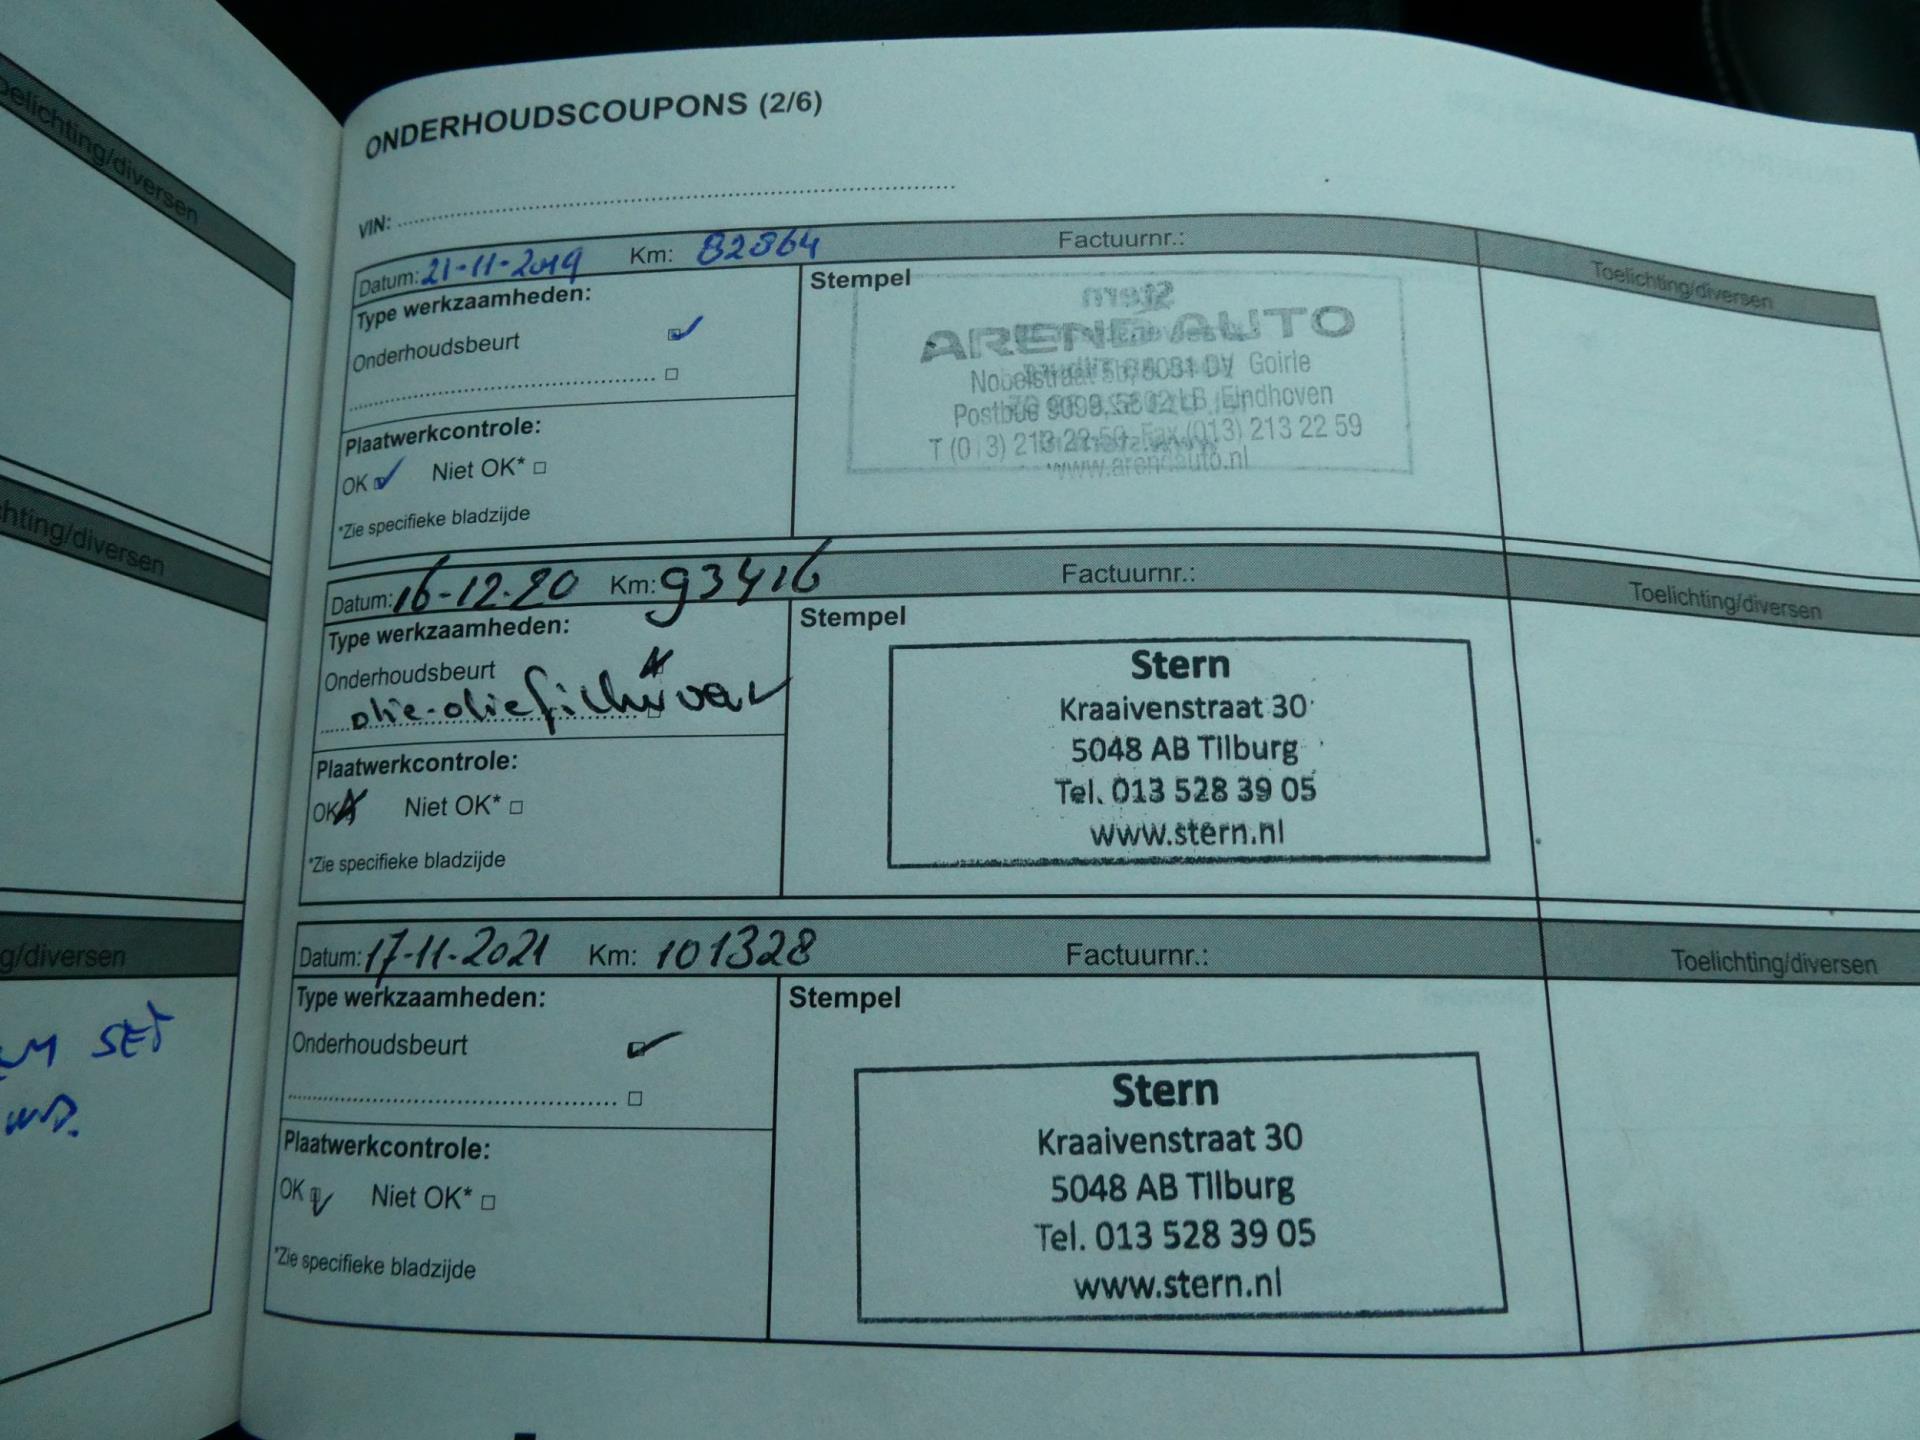 ONDERHOUDSCOUPONS (2/6)
VIN:
Datum: 21-11-2019 Km: 82864 Factuurnr.: Toelichting/diversen
Type werkzaamheden:
Onderhoudsbeurt
Plaatwerkcontrole:
OK Niet OK*
*Zie specifieke bladzijde
Stempel
Stern
AREND AUTO
Nobelstraat 5b, 5051 DV Goirle
Postbus 9099, 5602 LB Eindhoven
T (013) 213 22 50 Fax (013) 213 22 59
www.arendauto.nl
Datum: 16-12-20 Km: 93416 Factuurnr.: Toelichting/diversen
Type werkzaamheden:
Onderhoudsbeurt
olie-oliefilter
Plaatwerkcontrole:
OK Niet OK*
*Zie specifieke bladzijde
Stempel
Stern
Kraaivenstraat 30
5048 AB Tilburg
Tel. 013 528 39 05
www.stern.nl
Datum: 17-11-2021 Km: 101328 Factuurnr.: Toelichting/diversen
Type werkzaamheden:
Onderhoudsbeurt
Plaatwerkcontrole:
OK Niet OK*
*Zie specifieke bladzijde
Stempel
Stern
Kraaivenstraat 30
5048 AB Tilburg
Tel. 013 528 39 05
www.stern.nl
oelichting/diversen
hting/diversen
g/diversen
SET